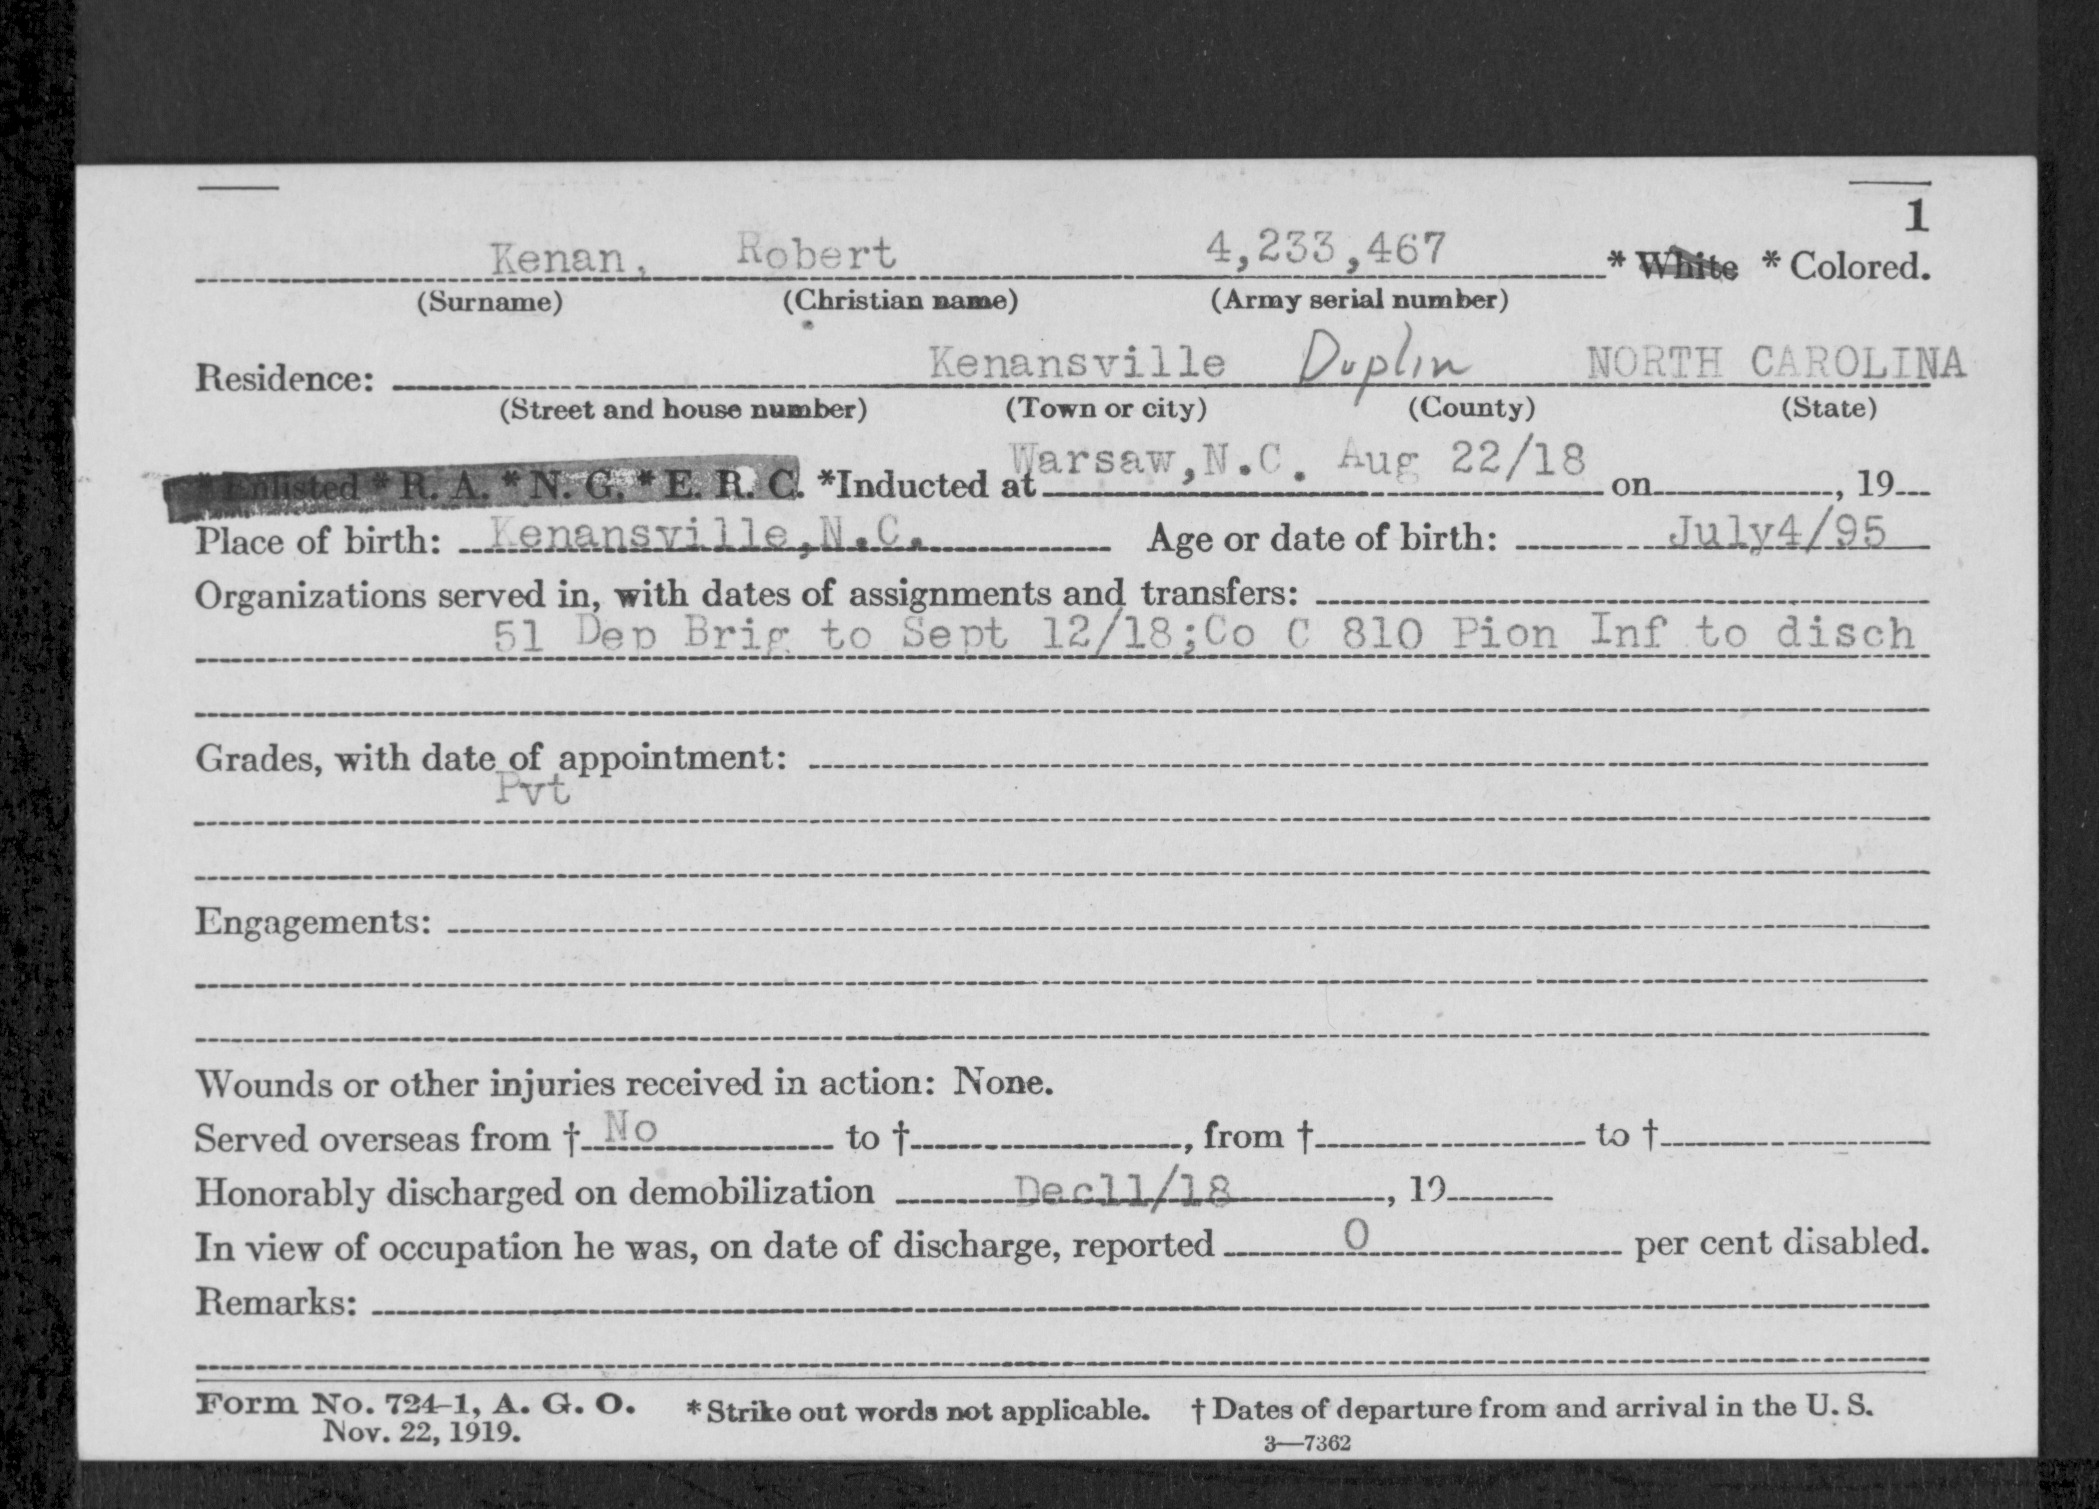 1
Kenan, Robert 4,233,467 * White * Colored.
(Surname) (Christian name) (Army serial number)
Residence: Kenansville Duplin NORTH CAROLINA
(Street and house number) (Town or city) (County) (State)
* Enlisted * R. A. * N. G. * E. R. C. *Inducted at Warsaw,N.C. Aug 22/18 on , 19
Place of birth: Kenansville,N.C. Age or date of birth: July4/95
Organizations served in, with dates of assignments and transfers:
51 Dep Brig to Sept 12/18;Co C 810 Pion Inf to disch
Grades, with date of appointment:
Pvt
Engagements:
Wounds or other injuries received in action: None.
Served overseas from † No to † , from † to †
Honorably discharged on demobilization Dec11/18 , 19
In view of occupation he was, on date of discharge, reported 0 per cent disabled.
Remarks:
Form No. 724-1, A. G. O. * Strike out words not applicable. † Dates of departure from and arrival in the U. S.
Nov. 22, 1919. 3—7362